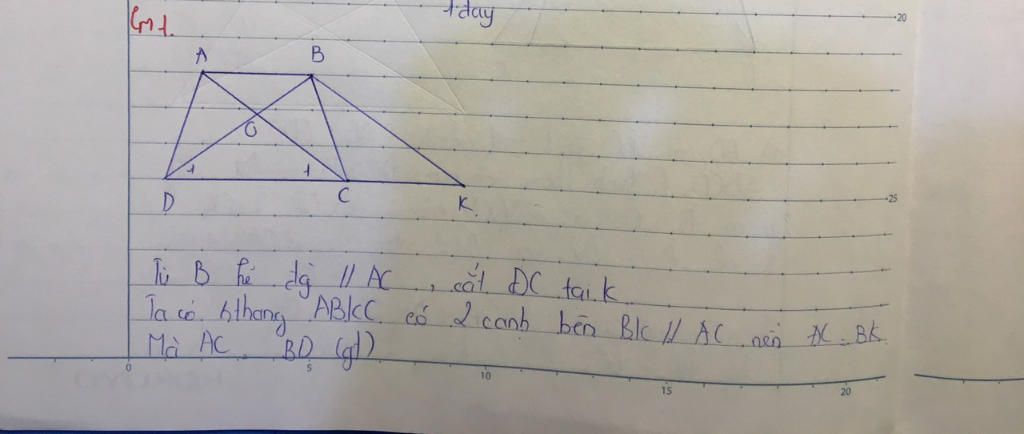 1 day
20
Cm1.
A B
O
1 1
D C K.
25
Từ B kẻ đg // AC , cắt DC tại K
Ta có hthang ABKC có 2 cạnh bên BK // AC nên AC = BK
Mà AC = BD (gt)
0 5 10 15 20